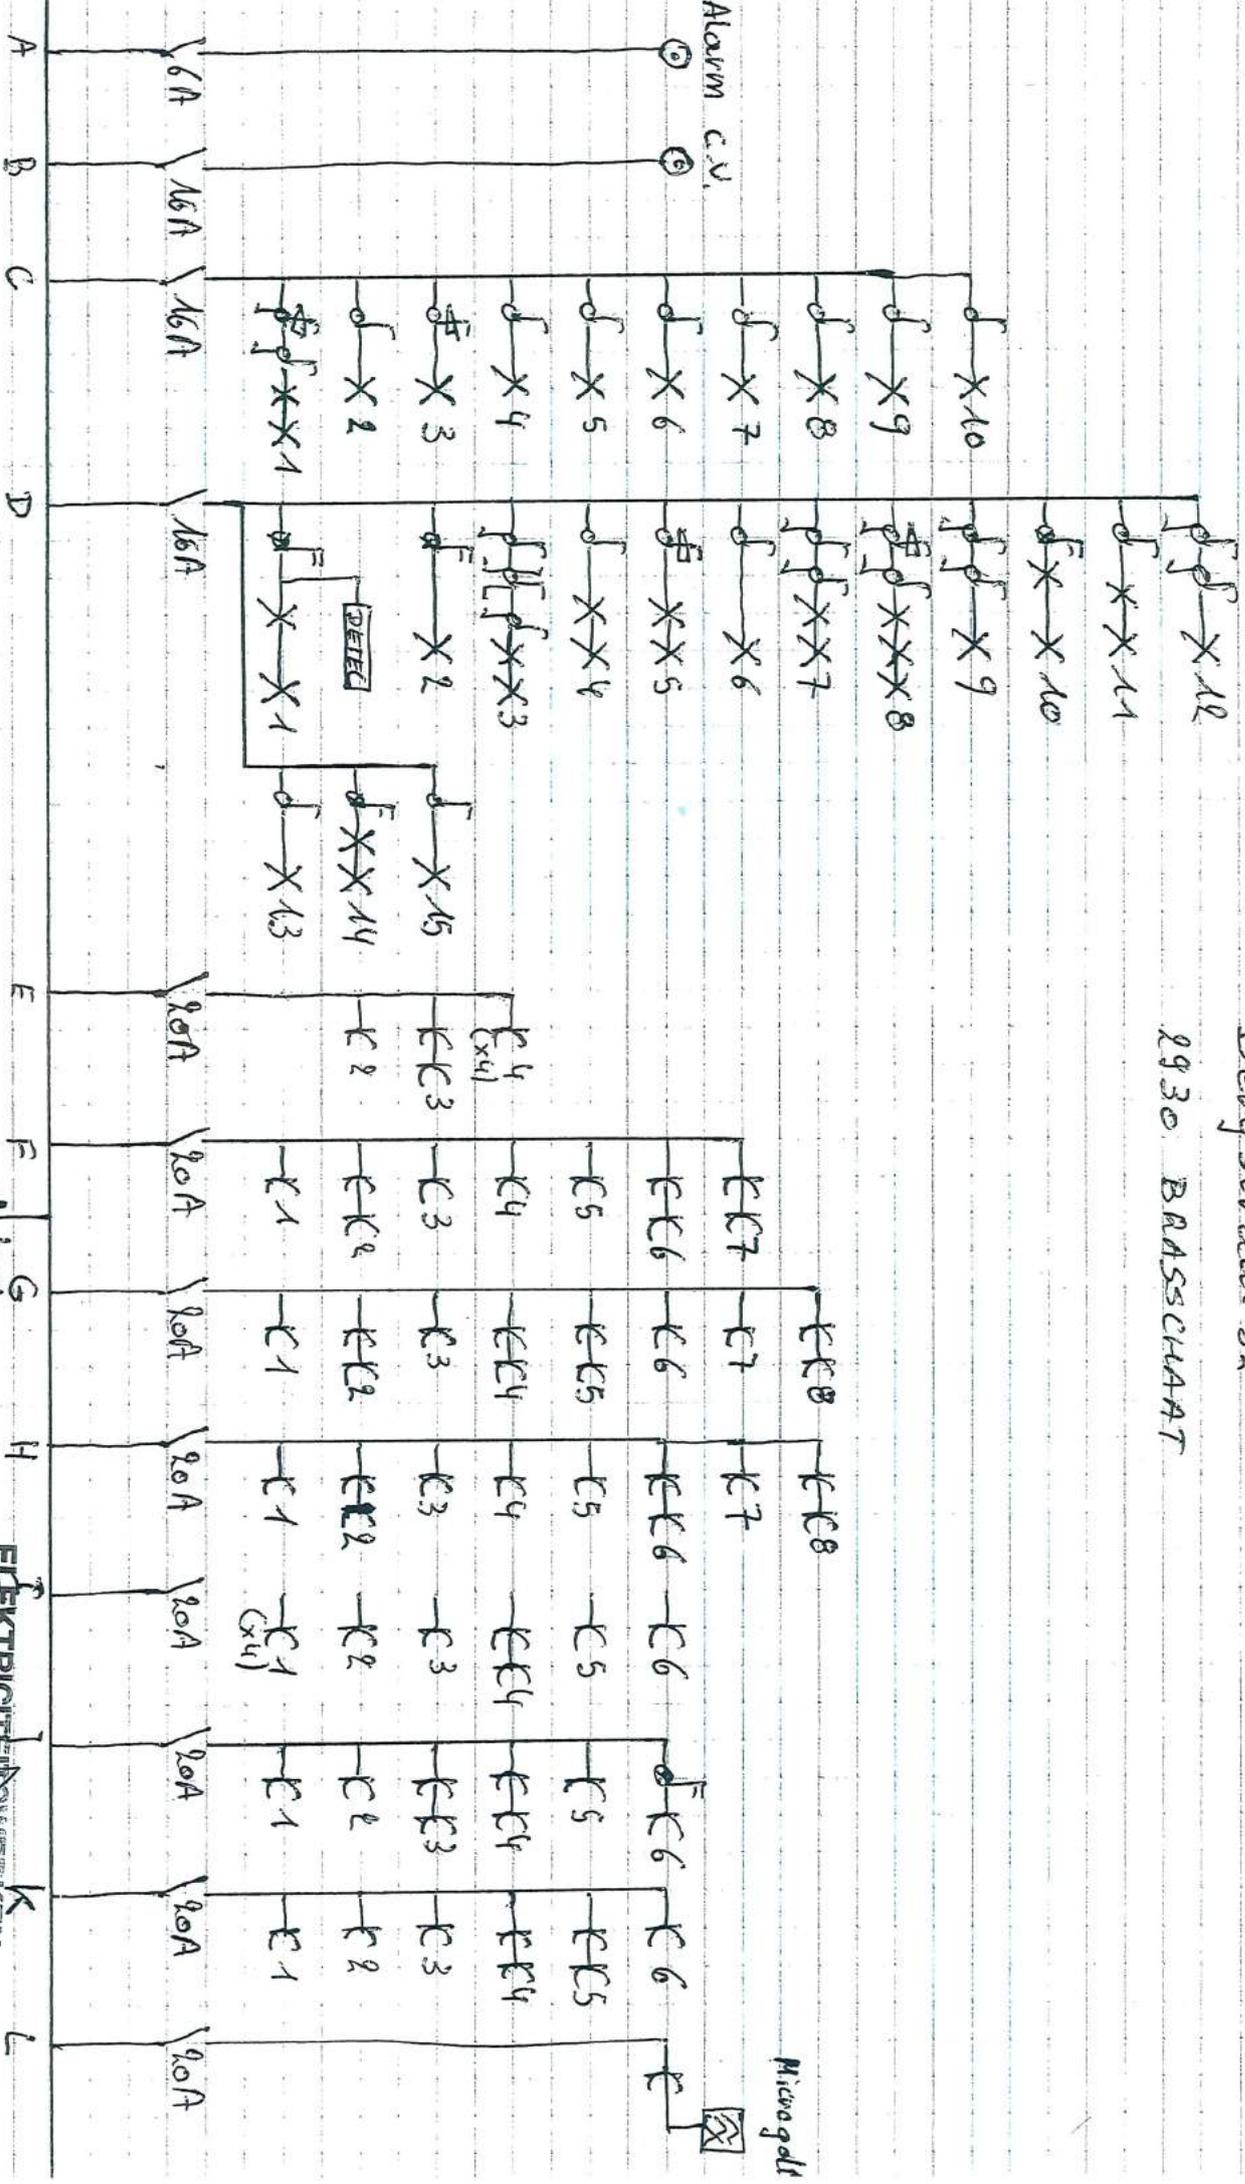 2930 BRASSCHAAT
Alarm C.V.
Microgolf
A 6A
B 16A
C 16A
1
2
3
4
5
6
7
8
9
10
D 16A
DETEC
1
2
3
4
5
6
7
8
9
10
11
12
13
14
15
E 20A
2
3
4
(x4)
F 20A
1
2
3
4
5
6
7
G 20A
1
2
3
4
5
6
7
8
H 20A
1
2
3
4
5
6
7
8
20A
1
(x4)
2
3
4
5
6
20A
1
2
3
4
5
6
K 20A
1
2
3
4
5
6
L 20A